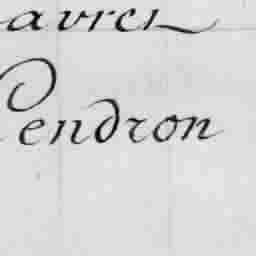 avres
Pendron